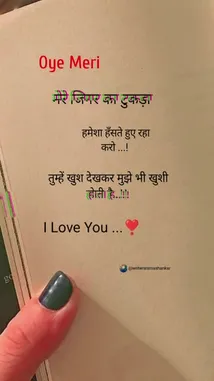 Oye Meri
मेरे जिगर का टुकड़ा
हमेशा हँसते हुए रहा
करो ...!
तुम्हें खुश देखकर मुझे भी खुशी
होती है..!!
I Love You ...❣️